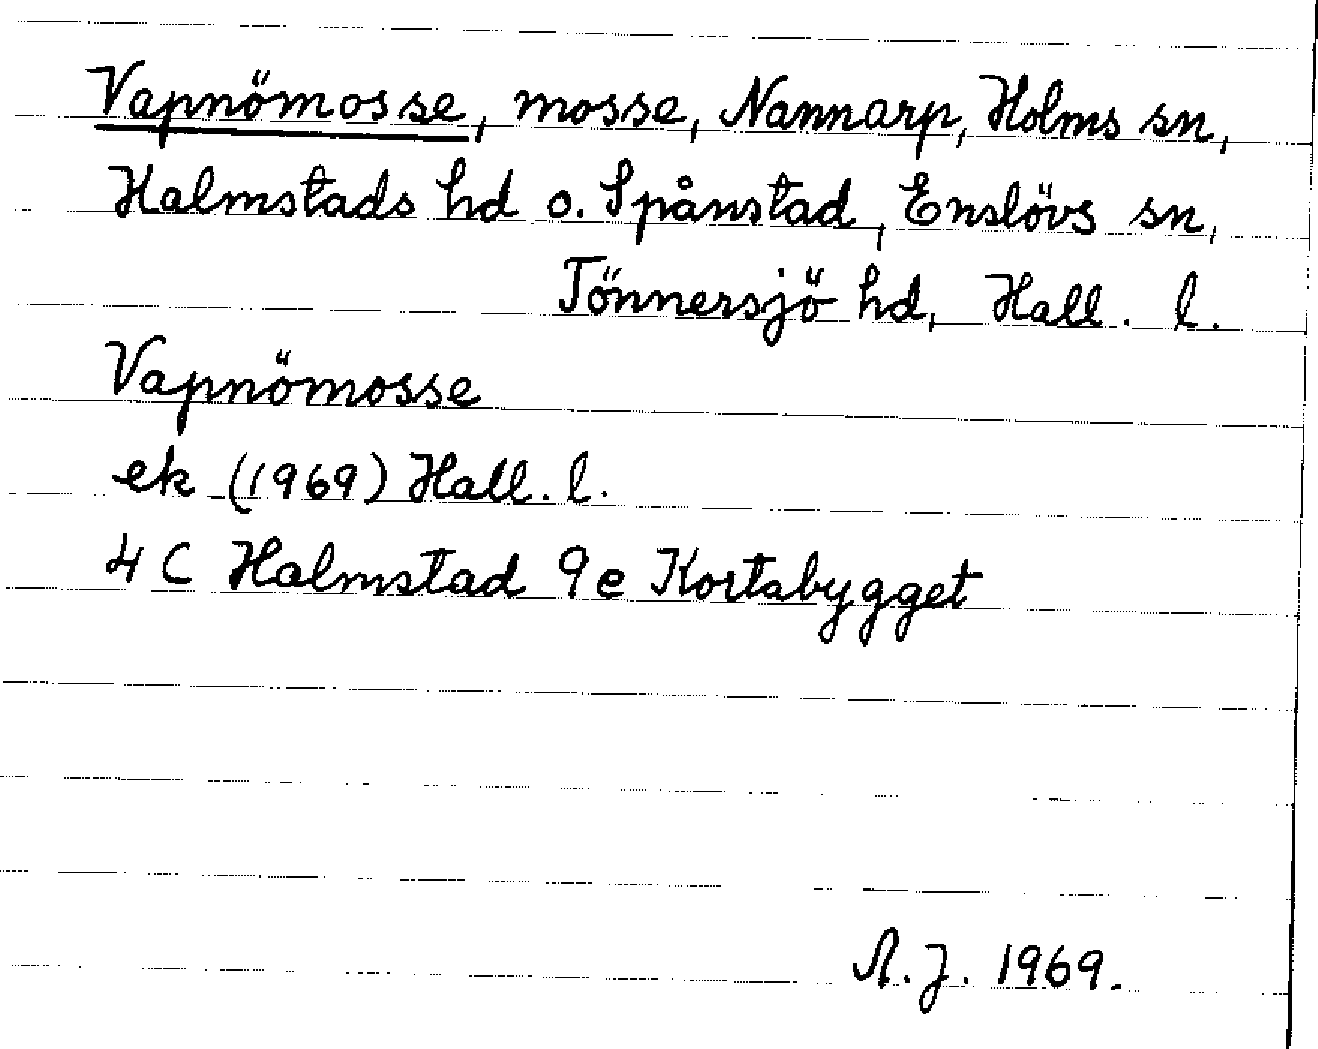 Vapnömosse, mosse, Nannarp, Holms sn,
Halmstads hd o. Spånstad, Enslövs sn,
Tönnersjö hd, Hall. l.
Vapnömosse
ek (1969) Hall. l.
4 C Halmstad 9e Kortabygget
A.J. 1969.